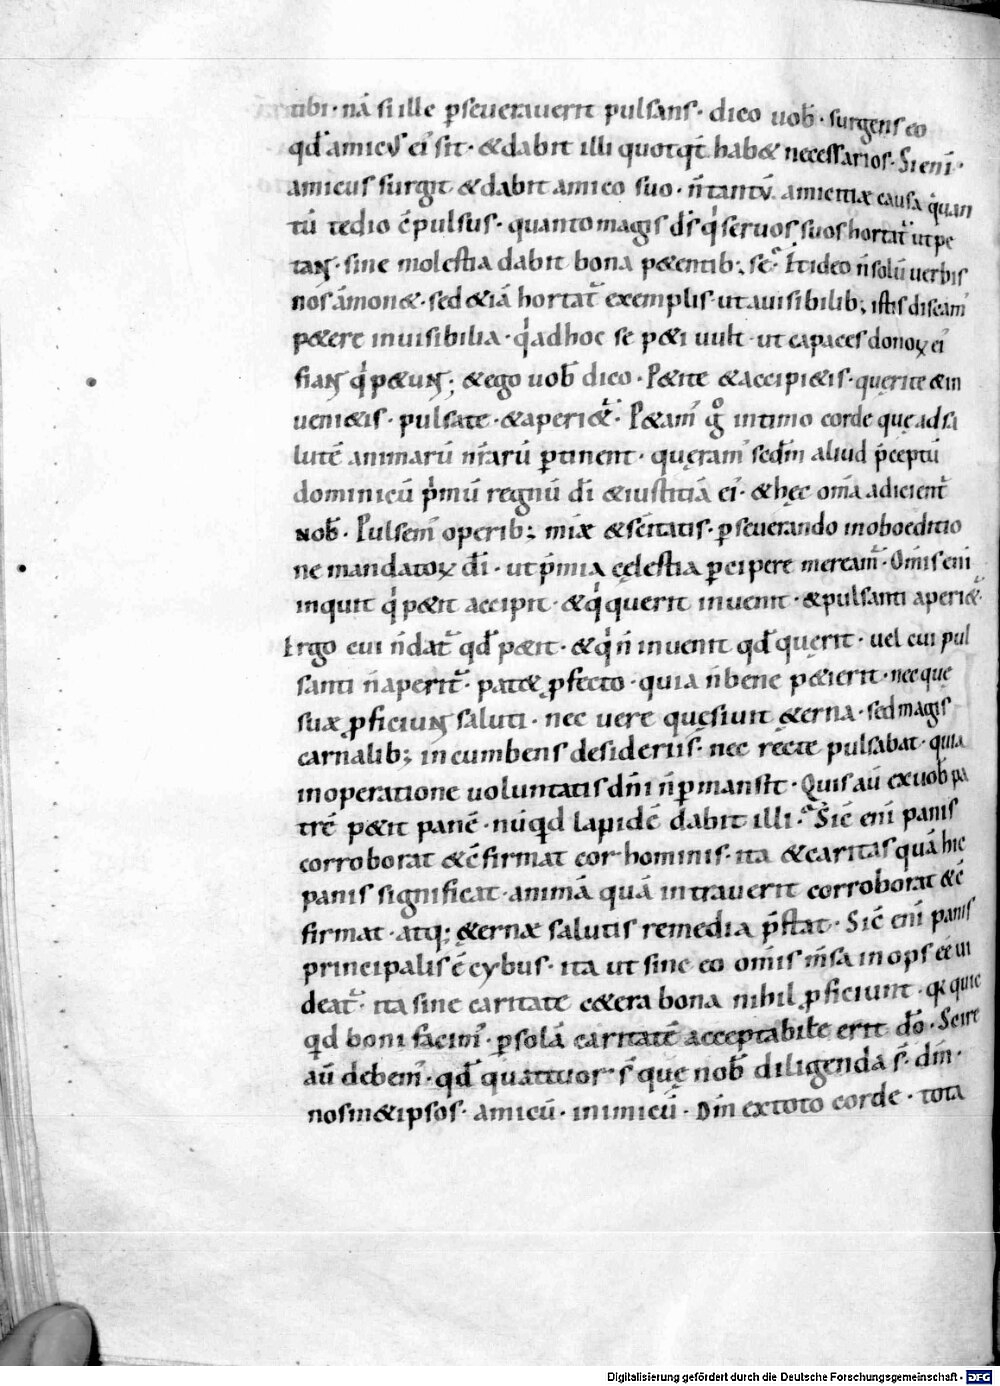 tibi · nā si ille ꝑseuerauerit pulsans · dico uob̄ · surgens eo
qd̄ amicus ei' sit · &dabit illi quotqt̄ hab& necessarios · Si eni ·
amicus surgit &dabit amico suo · n̄ tantū amicitiæ causa quan
tū tedio c̄pulsus · quanto magis d̄s qi seruos suos hortat̄ ut pe
tant · sine molestia dabit bona p&entib; Et ideo n̄ solū uerbis
nos āmon& · sed &iā hortat̄ exemplis · ut a uisibilib; istis discam'
p&ere inuisibilia · qi ad hoc se p&i uult · ut capaces donoꝝ ei'
fiant qi p&unt ; &ego uob̄ dico · P&ite &accipi&is · quęrite &in
ueni&is · pulsate · &aperi&̄ · P&am' gͦ intimo corde quę ad sa
lutē animarū nr̄arū ꝑtinent · quęram' sedm̄ aliud p̄ceptū
dominicū p̄mū regnū d̄i &iustitiā ei' · &hęc om̄a adicient̄
nob̄ · Pulsem' operib; miæ &sc̄itatis · ꝑseuerando in oboeditio
ne mandatoꝝ d̄i · ut p̄mia cęlestia ꝑcipere mercam̄ · Om̄is eni
inquit qi p&it accipit · &qi querit inuenit · &pulsanti aperi&̄ ·
Ergo cui n̄ dat̄ qd̄ p&it · &qi n̄ inuenit qd̄ quęrit · uel cui pul
santi n̄ aperit̄ · pat& ꝓfecto · quia n̄ bene p&ierit · nec quę
suæ ꝓficiunt saluti · nec uere quęsiuit &erna · sed magis
carnalib; incumbens desideriis · nec recte pulsabat · quia
in operatione uoluntatis dn̄i n̄ ꝑmansit · Quis aū ex uob̄ pa
trē p&it panē · nūqd lapidē dabit illi · Sic̄ eni panis
corroborat &c̄firmat cor hominis · ita &caritas quā hic
panis significat · animā quā intrauerit corroborat &c̄
firmat · atq; &ernæ salutis remedia p̄stat · Sic̄ eni panis
principalis ē cybus · ita ut sine eo om̄is m̄sa inops eē ui
deat̄ · ita sine caritate c&era bona nihil ꝓficiunt · &quic
qd boni facim' · ꝑ solā caritatē acceptabile erit d̄o · Scire
aū debem' · qd̄ quattuor s̄ quę nob̄ diligenda s̄ · dm̄ ·
nosm&ipsos · amicū · inimicū · Dm̄ ex toto corde · tota
Digitalisierung gefördert durch die Deutsche Forschungsgemeinschaft - DFG